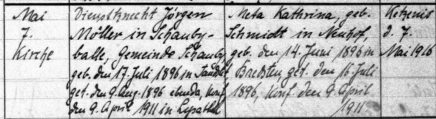 Mai
7.
Kirche
Dienstknecht Jörgen
Möller in Schauby-
balle, Gemeinde Schauby
geb. den 17. Juli 1896 in
get. den 9. Aug. 1896 ebenda, konf.
den 9. April 1911 in
Meta Kathrina, geb.
Schmidt in
geb. den 14. Juni 1896 in
get. den 16. Juli
1896, Konf. den 9. April
1911
d. 7.
Mai 1916